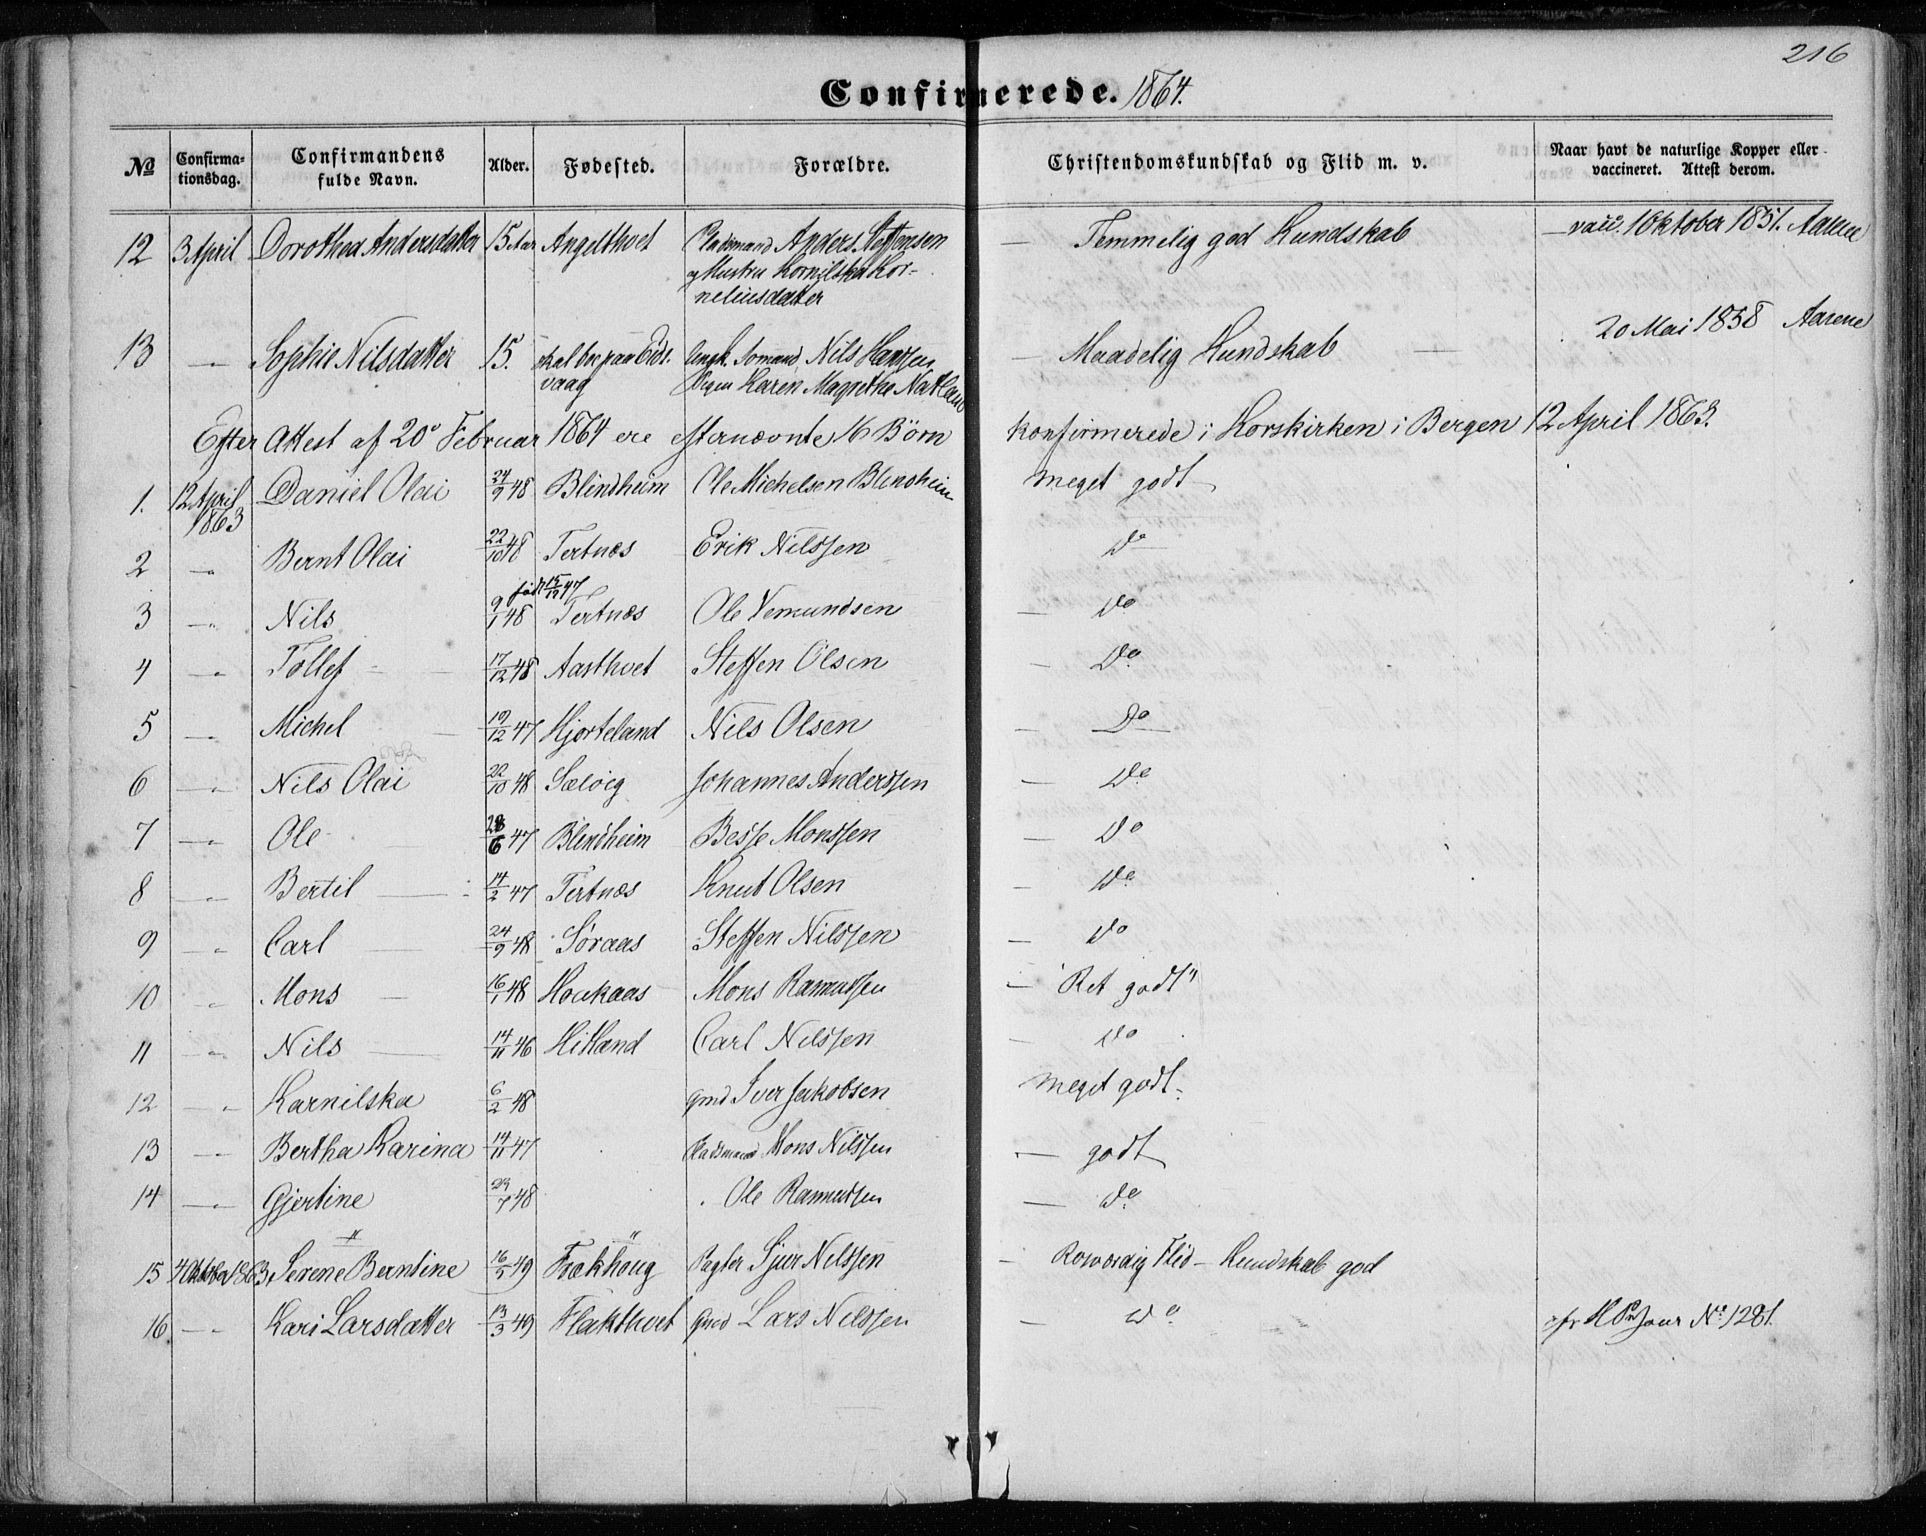 216
Confirmerede. 1864.
№ Confirma-tionsdag. Confirmandens fulde Navn. Alder. Fødested. Forældre. Christendomskundskab og Flid m. v. Naar havt de naturlige Kopper eller vaccineret. Attest derom.
12 3 April Dorothea Andersdatter 15 Aar Angelthvet Pladsmand Anders Steffensen — Temmelig god Kundskab — vacc. 1 Oktober 1851. Aasene
og Hustru Kornilska Kor-
neliusdatter
13 — Sophie Nilsdatter 15. skal bo paa Eids- Ungk. Somand Nils Hanssen — Maadelig Kundskab — 20 Mai 1858 Aasene
vaag Pigen Karen Magrethe Natland
Efter Attest af 20de Februar 1864 ere efternævnte 16 Börn konfirmerede i Korskirken i Bergen 12 April 1863.
1. 12 April 1863 Daniel Olai 24/9 48 Blindheim Ole Michelsen Blindheim meget godt
2 — Bernt Olai 22/10 48 Tertnæs Erik Nilssen Do
född 15/12 47
3 — Nils 9/1 48 Tertnæs Ole Vemundsen — Do
4 — Tollef 17/12 48 Aasthvet Steffen Olsen — Do
5 — Michel 19/12 47 Hjorteland Nils Olsen — Do
6 — Nils Olai 22/10 48 Sælvig Johannes Anderssen — Do
7 — Ole 28/6 47 Blindheim Besse Monssen — Do
8 — Bertil 14/2 47 Tertnæs Knut Olsen — Do
9 — Carl 24/9 48 Söraas Steffen Nilssen — Do
10 — Mons 16/1 48 Houkaas Mons Rasmussen — "Ret godt"
11 — Nils 14/11 46 Hitland Carl Nilssen — Do
12 — Karnilska 6/2 48 gmd Iver Jakobsen meget godt
13 — Bertha Karina 14/11 47 Pladsmand Mons Nilssen — godt
14 — Gjertine 29/7 48 Ole Rasmussen — Do
15 4 Oktober 1863 Serene Berntine 16/5 49 Frækhoug Pagter Sjur Nilssen — Roværdig Flid — Kundskab god
16 — Kari Larsdatter 13/3 49 Flakthvet gmd Lars Nilssen — Do cfr Jour No 1281.